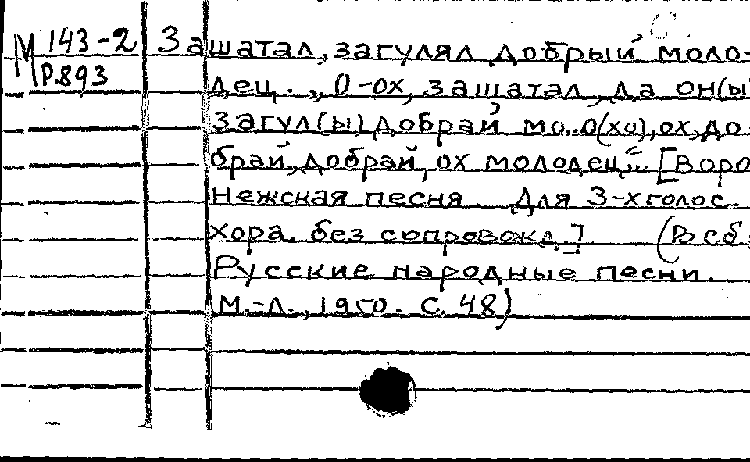 М 143-2 Зашатал, загулял добрый моло-
Р.893 дец. „О-ох, зашатал, да он(ы)
загул(ы) добрай мо..о(хо), ох, до-
брай, добрай, ох молодец"... [Воро-
нежская песня Для 3-хголос.
хора. без сопровожд.] (В сб.:
Русские народные песни.
М.-Л., 1950. С. 48)